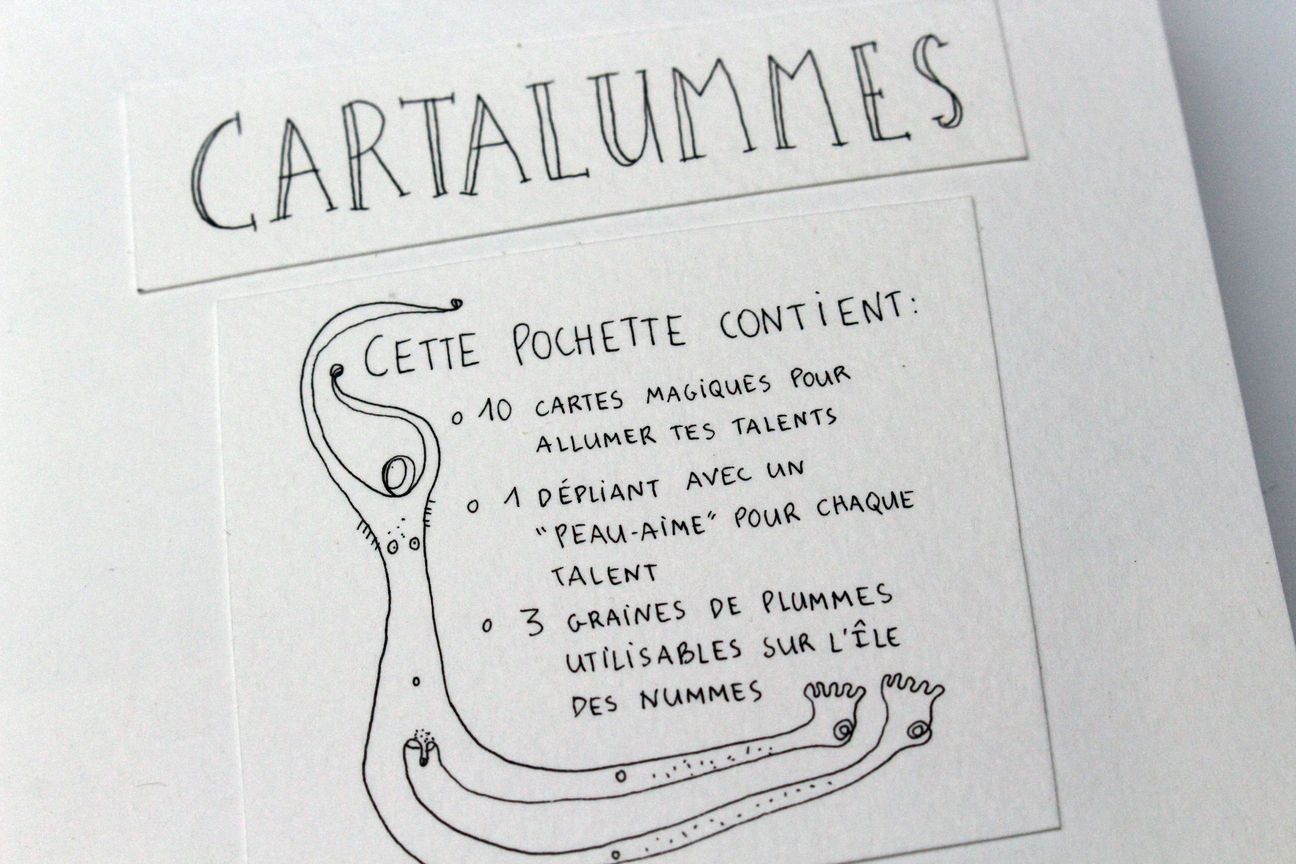 CARTALUMMES
CETTE POCHETTE CONTiENT:
10 CARTES MAGiQUES POUR
ALLUMER TES TALENTS
1 DÉPLiANT AVEC UN
"PEAU-AiME" POUR CHAQUE
TALENT
3 GRAiNES DE PLUMMES
UTiLiSABLES SUR L'ÎLE
DES NUMMES